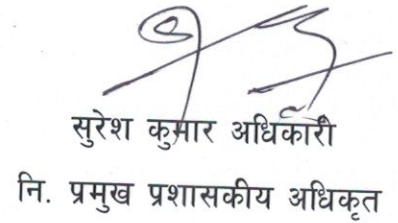 सुरेश कुमार अधिकारी
नि. प्रमुख प्रशासकीय अधिकृत